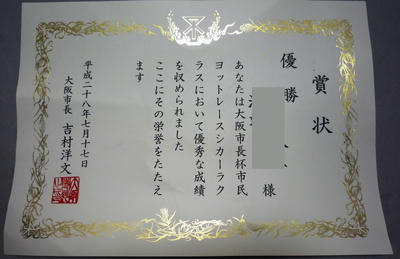 賞状
優勝
様
あなたは大阪市長杯市民
ヨットレースシカーラク
ラスにおいて優秀な成績
を収められました
ここにその栄誉をたたえ
ます
平成二十八年七月十七日
大阪市長 吉村洋文